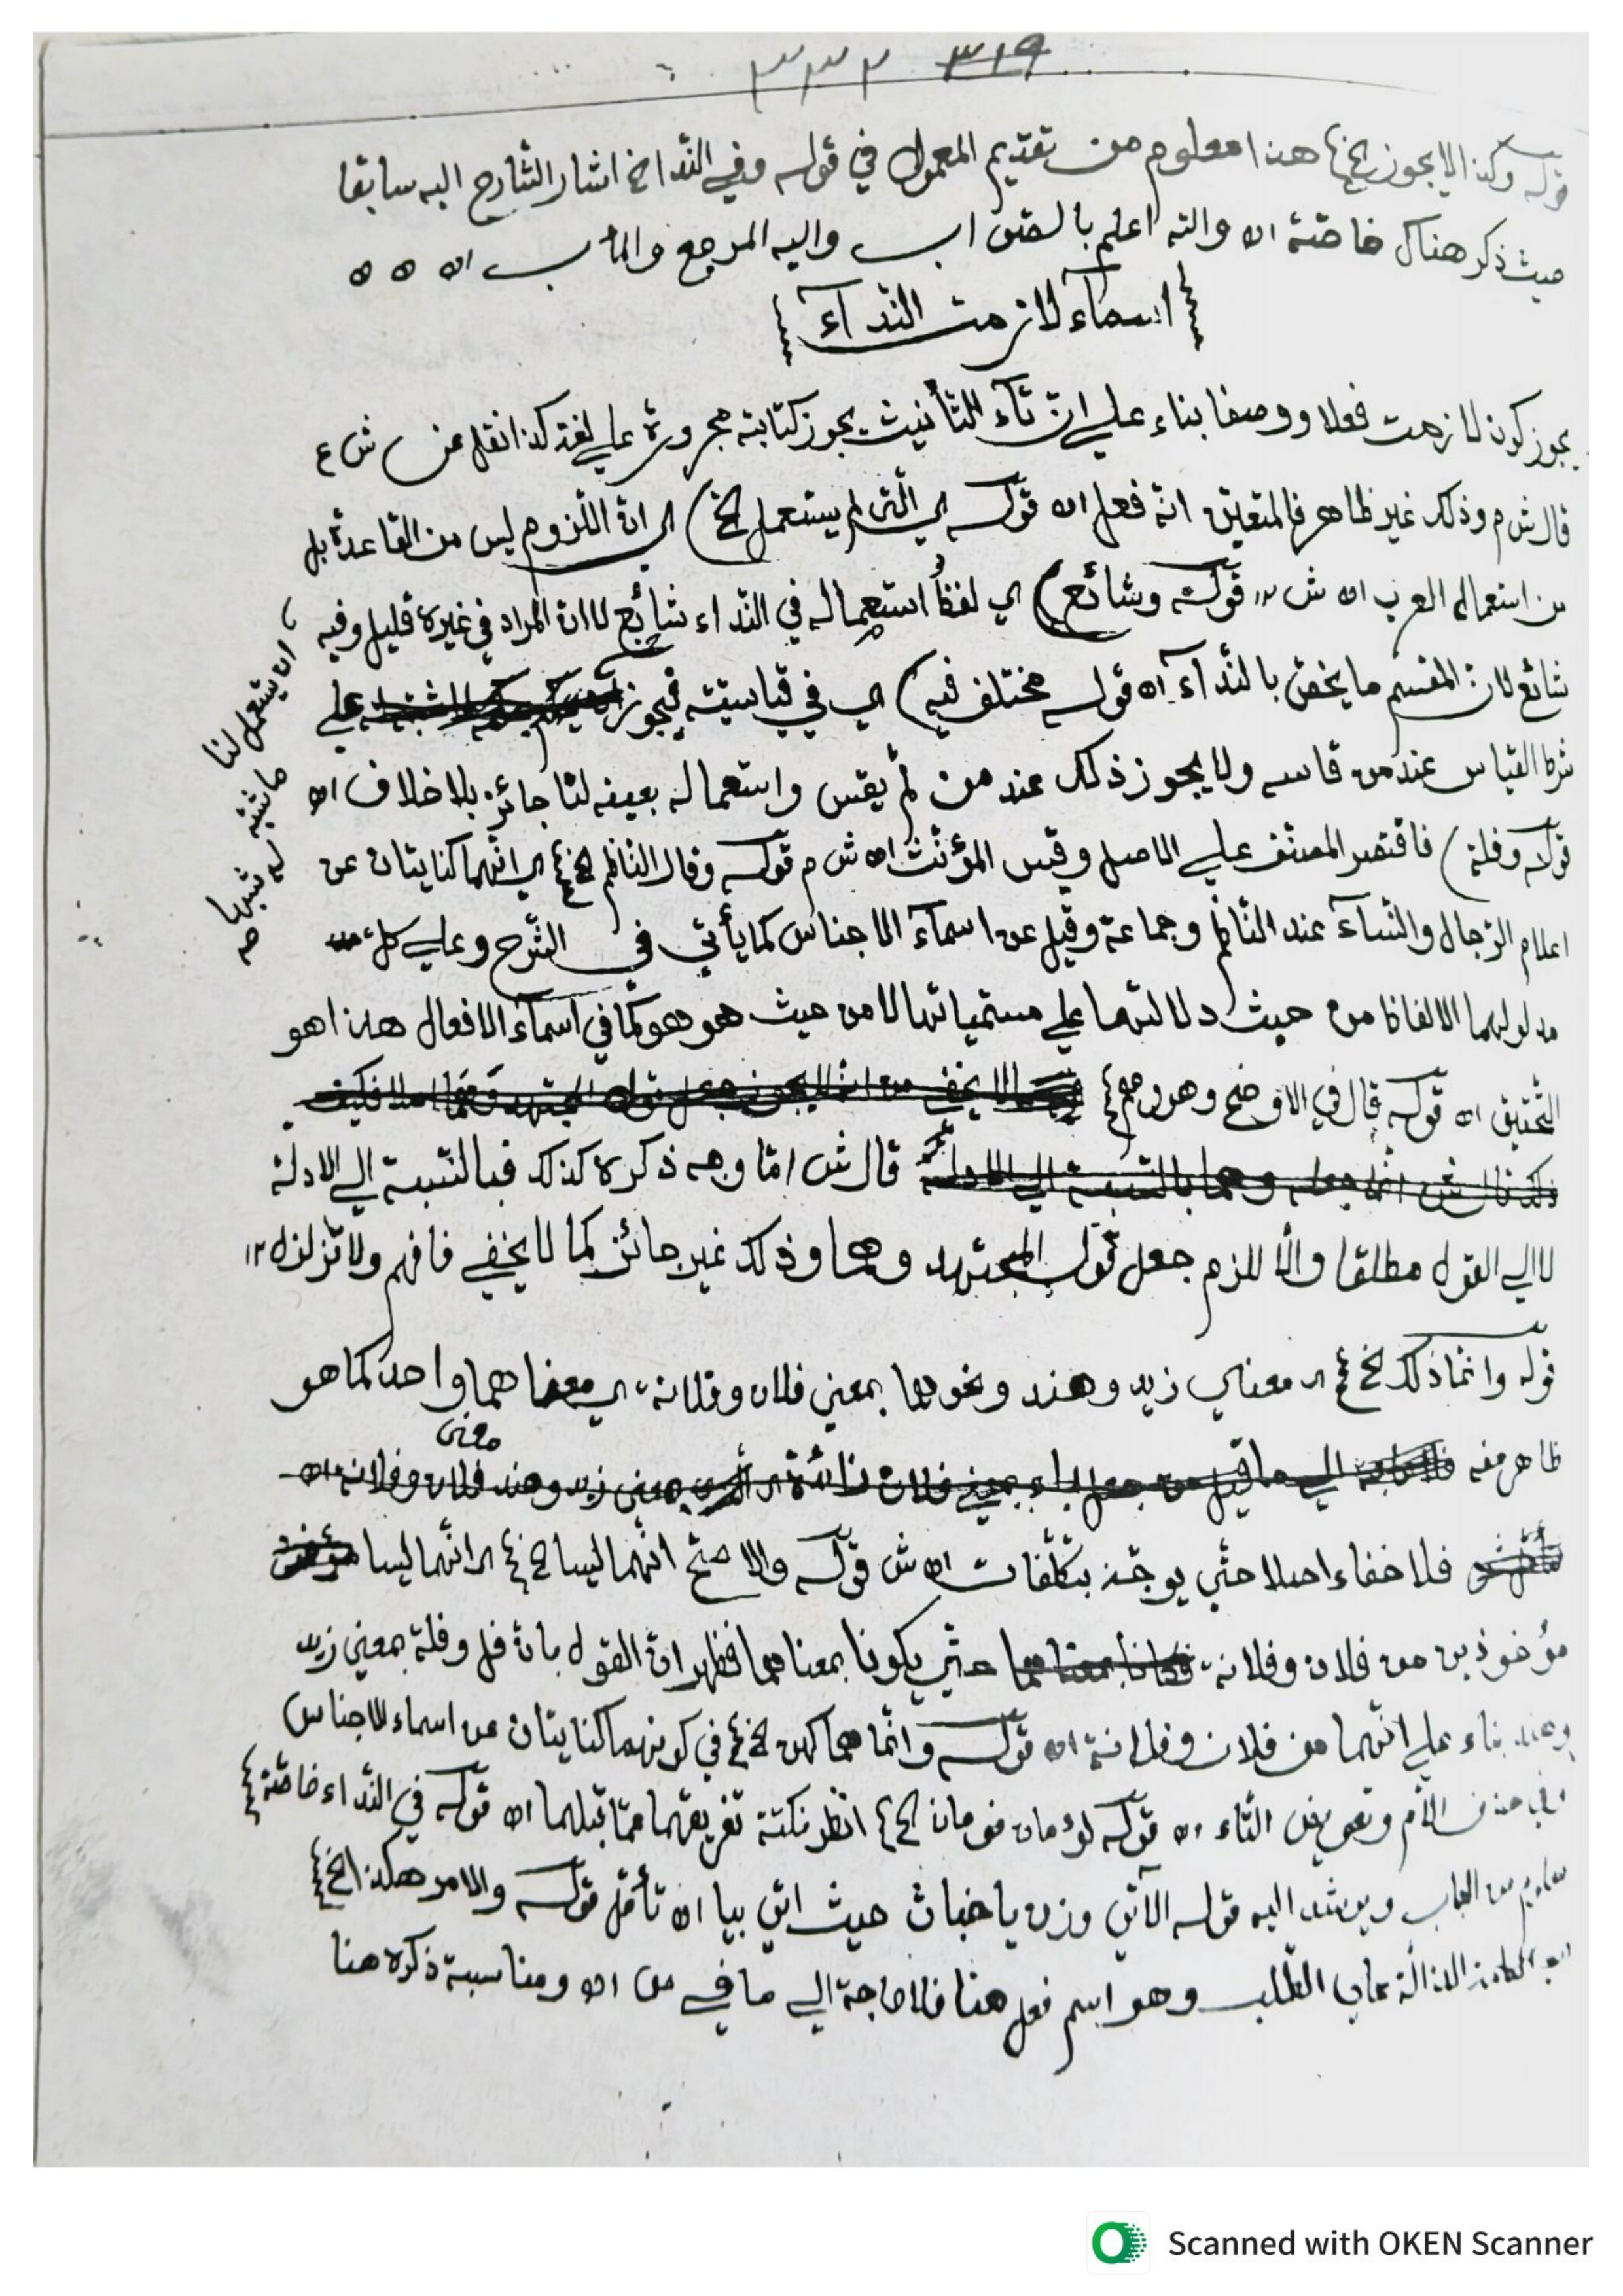 ٣١٩ ٣٣٢
قوله وكذا لا يجوز الخ) هذا معلوم من تقديم المعمول في قوله وفي الندا الخ اشار الشارح اليه سابقا
حيث ذكر هناك خاصّة اه والله اعلم بالصواب واليه المرجع والمآب اه ه ه
اسمآء لازمت الندآء
يجوز كون لازمت فعلا ووصفا بناء علي انّ تآء التأنيث يجوز كتابته مجرورة علي لغة كذا نقل عن ش ع
قال ش م وذلك غير ظاهر فالمتعين انه فعل اه قوله اي الّتي لم يستعمل الخ) اي انّ اللزوم ليس من القاعدة بل
من استعمال العرب اه ش قوله وشائع) اي لفظ استعماله في النداء شائع لا ان المراد في غيره قليل وفيه
شائع لان المقسم ما يخص بالندآء اه قوله مختلف فيه) اي في قياسيته فيجوز علي
ان يستعمل لنا ما شئنا
شرط القياس عند من قاسه ولا يجوز ذلك عند من لم يقس واستعماله بعينه لنا جائز بلا خلاف اه
قوله وفلة) فاقتصر المصنف علي الاصل وقس المؤنث اه ش م قوله وقال الناظم الخ اي انهما كنايتان عن
اعلام الرجال والنسآء عند الناظم وجماعة وقيل عن اسمآء الاجناس كما يأتي في الشرح وعلي كل
مدلولهما الالفاظ من حيث دلالتهما علي مسمياتها لا من حيث هو هو كما في اسمآء الافعال هذا هو
التحقيق اه قوله قال في الاوضح وهو وهم
قال ش امّا وجه ذكره كذلك فبالنسبة الي الادلة
لا الي القول مطلقا والّا للزم جعل قول المجتهد وهما وذلك غير جائز كما لا يخفي فافهم ولا تزلزل
قوله وانما ذلك الخ اي معناي زيد وهند ونحوهما بمعني فلان وفلانة اي معناهما واحد كما هو
معني
ظاهر منه
فلا خفاء اصلا حتّي يوجّه بتكلّفات اه ش قوله والاصح انهما ليسا الخ اي انّهما ليسا
مؤخوذين من فلان وفلانة حتّي يكونا بمعناهما فظهر ان القول بانّ فل وفلة بمعني زيد
وهند بناء علي انهما من فلان وفلانة اه قوله وانّما هما كهن الخ في كونهما كنايتان عن اسماء الاجناس
وفي حذف اللام وتعويض التاء اه قوله لؤمان نومان الخ انظر نكتة تفريقهما عمّا قبلهما اه قوله في النداء خاصّة
من الباب ويرشد اليه قوله الآتي وزن يا خباث حيث اتي بيا اه تأمّل قوله والامر هكذا الخ
الدالّة علي الطلب وهو اسم فعل هنا فلا حاجة الي ما في ص اه ومناسبة ذكره هنا
Scanned with OKEN Scanner